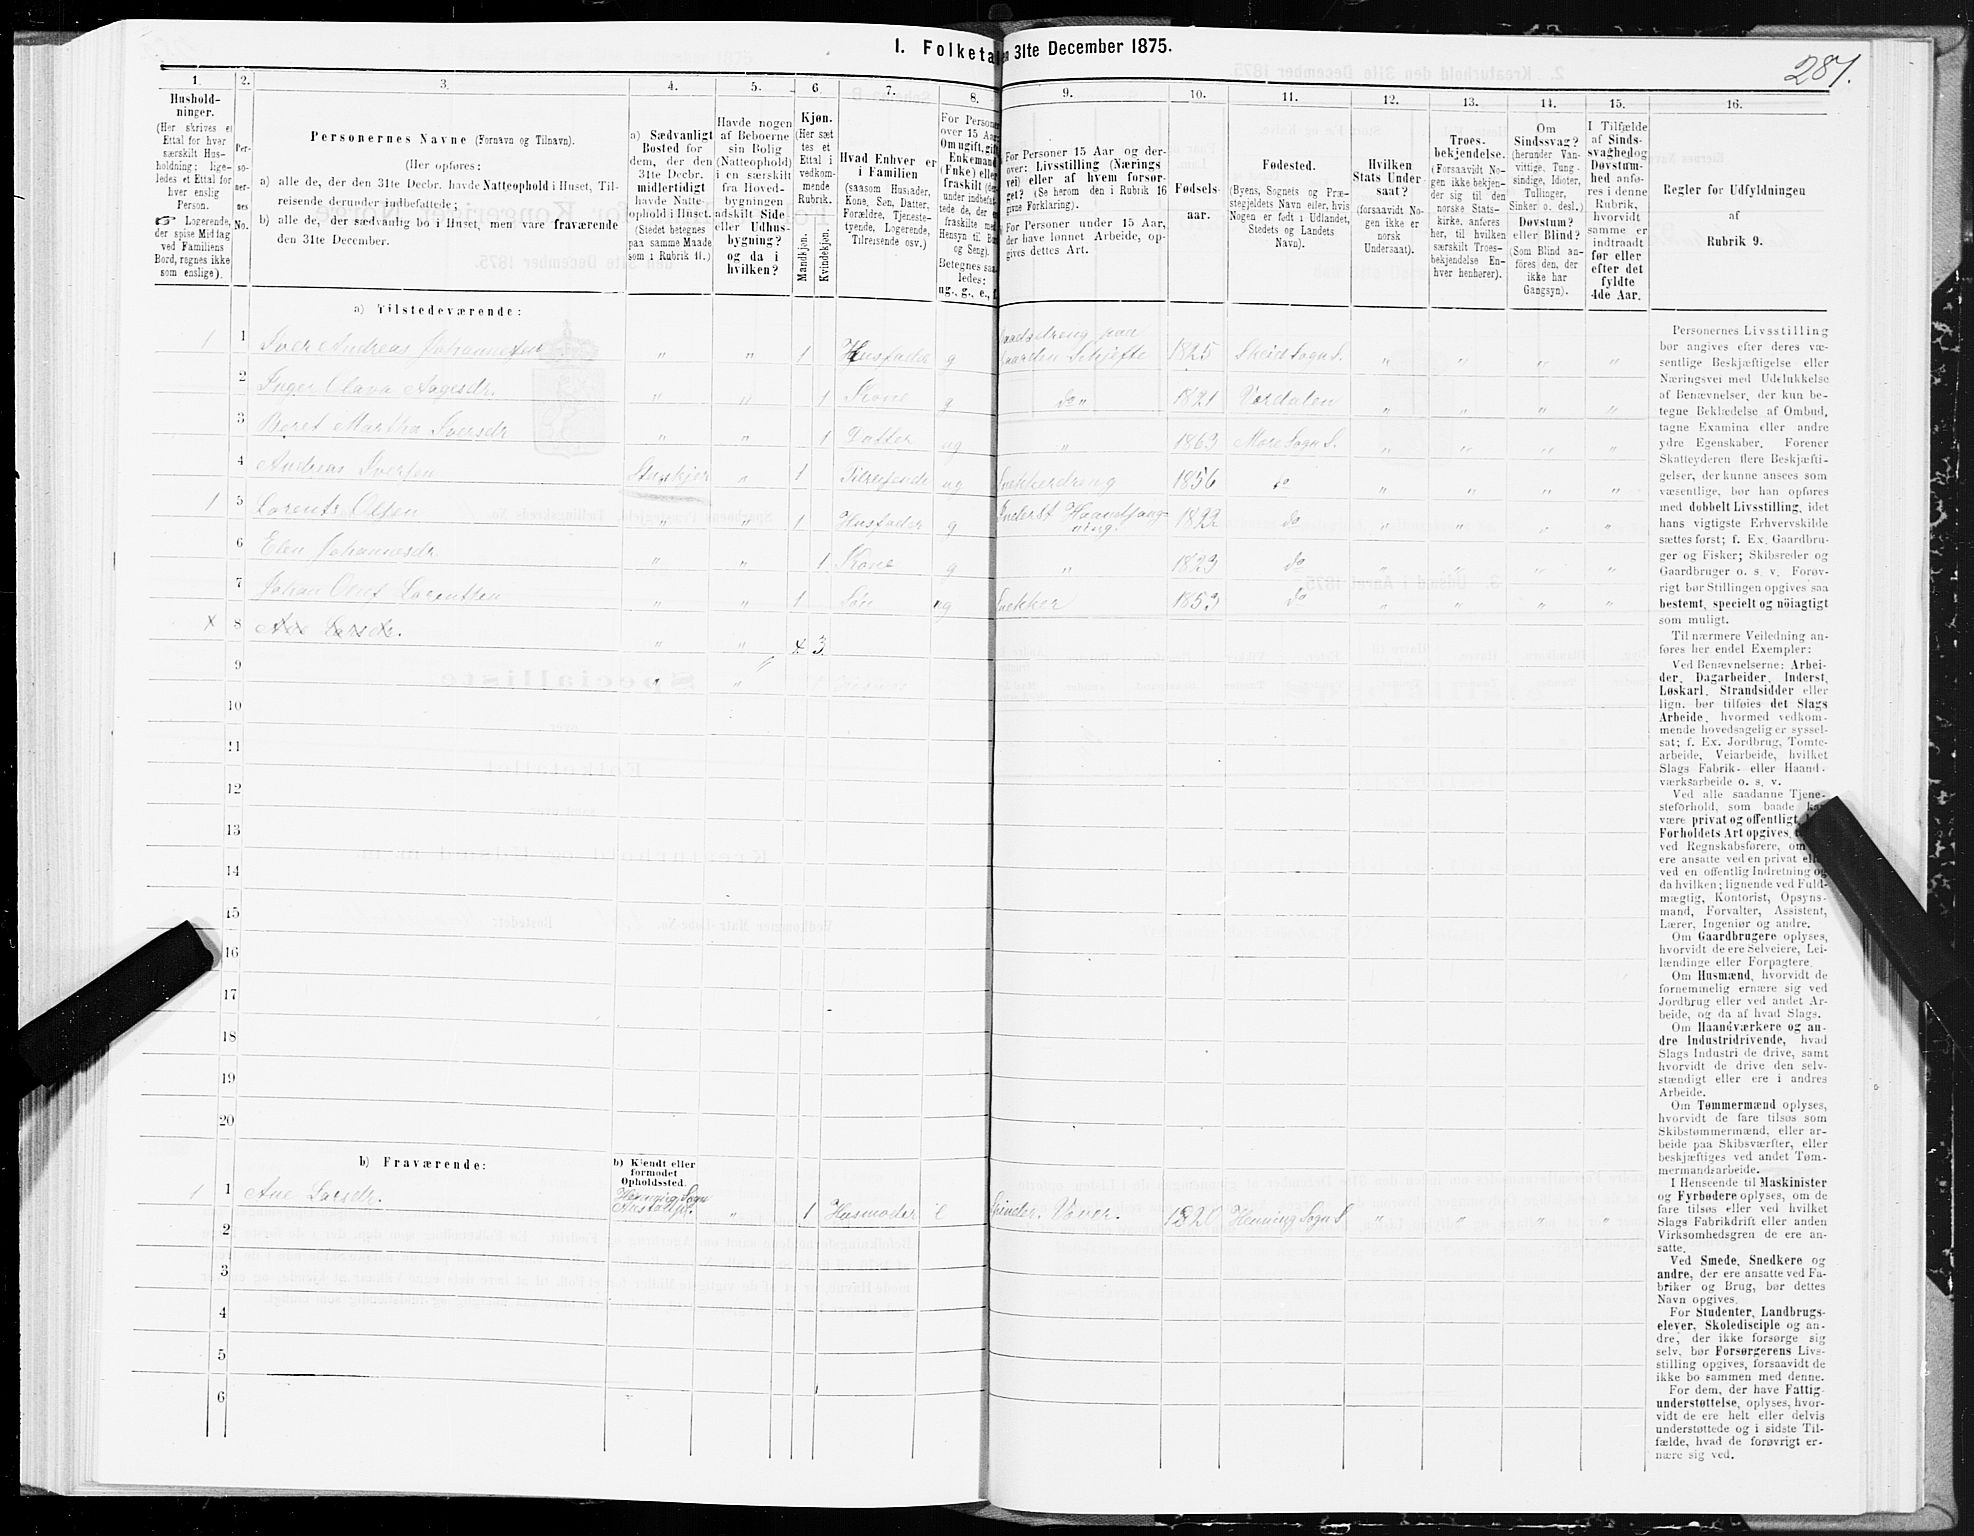 I. Folketal
en 31te December 1875.
281.
1.
2.
3.
4.
5.
6
7.
8.
9.
10.
11.
12.
13.
14.
15.
16.
Hushold-
ninger.
(Her skrives et
Ettal for hver
særskilt Hus-
holdning; lige-
ledes et Ettal for
hver enslig
Person.
Logerende,
der spise Middag
ved Familiens
Bord, regnes ikke
som enslige).
Per-
so-
ner-
nes
No.
Personernes Navne (Fornavn og Tilnavn).
(Her opføres:
a) alle de, der den 31te Decbr. havde Natteophold i Huset, Til-
reisende derunder indbefattede;
b) alle de, der sædvanlig bo i Huset, men vare fraværende
den 31te December.
a) Sædvanligt
Bosted for
dem, der den
31te Decbr.
midlertidigt
havde Natte-
ophold i Huset.
(Stedet betegnes
paa samme Maade
som i Rubrik 11.)
Havde nogen
af Beboerne
sin Bolig
(Natteophold)
i en særskilt
fra Hoved-
bygningen
adskilt Side-
eller Udhus-
bygning?
og da i
hvilken?
Kjøn.
(Her sæt
tes et
Ettal i
vedkom-
mende
Rubrik.
Mandkjøn.
Kvindekjøn.
Hvad Enhver er
i Familien
(saasom Husfader,
Kone, Søn, Datter,
Forældre, Tjeneste-
tyende, Logerende,
Tilreisende osv.)
For Personer
over 15 Aar
Om ugift, gift,
Enkemand
(Enke) eller
fraskilt
Betegnes saa-
ledes:
ug., g., e., f.
For Personer 15 Aar og der-
over: Livsstilling (Nærings
vei) eller af hvem forsør-
get? (Se herom den i Rubrik 16
givne Forklaring).
For Personer under 15 Aar,
der have lønnet Arbeide, op-
gives dettes Art.
Fødsels-
aar.
Fødested.
(Byens, Sognets og Præ-
stegjeldets Navn eller, hvis
Nogen er født i Udlandet,
Stedets og Landets
Navn).
Hvilken
Stats Under-
saat?
(forsaavidt No-
gen ikke er
norsk
Undersaat).
Troes-
bekjendelse.
(Forsaavidt No-
gen ikke bekjen-
der sig til den
norske Stats-
kirke, anføres
her, til hvilken
særskilt Troes-
bekjendelse En-
hver henhører).
Om
Sindssvag?
(herunder Van-
vittige, Tung-
sindige, Idioter,
Tullinger,
Sinker o. desl.)
Døvstum?
eller Blind?
(Som Blind an-
føres den, der
ikke har
Gangsyn).
I Tilfælde
af Sinds-
svaghed og
Døvstum-
hed anfø-
res i denne
Rubrik,
hvorvidt
samme er
indtraadt
før eller
efter det
fyldte
4de Aar.
Regler for Udfyldningen
af
Rubrik 9.
a) Tilstedeværende:
1 1 Iver Andreas Johannesen " " 1 Husfader g Gaardsdreng paa Gaarden Schjefte 1825 Skeid Sogn S. " " " "
2 Inger Olava Aagesdr. " " 1 Kone g do " 1821 Værdalen " " " "
3 Beret Martha Iversdr " " 1 Datter ug " 1863 Mære Sogn S. " " " "
4 Andreas Iversen Stenkjer " 1 Tilreisende ug Snekkerdreng 1856 do " " " "
1 5 Lorents Olsen " " 1 Husfader g Inderst Haandtang- ning. 1822 do " " " "
6 Elen Johannesdr " " 1 Kone g " 1823 do " " " "
7 Johan Oluf Lorentsen " " 1 Søn ug Snekker 1853 do " " " "
x 8 Ane Larsdr. " " 4 3
9
10
11
12
13
14
15
16
17
18
19
20
b) Fraværende:
b) Kjendt eller
formodet
Opholdssted.
1 1 Ane Larsdr. Henning Sogn " 1 Husmoder e Spinder. Væver. 1820 Henning Sogn S " " " "
2
3
4
5
6
Personernes Livsstilling
bør angives efter deres væ-
sentlige Beskjæftigelse eller
Næringsvei med Udelukkelse
af Benævnelser, der kun be-
tegne Beklædelse af Ombud,
tagne Examina eller andre
ydre Egenskaber. Forener
Skatteyderen flere Beskjæfti-
gelser, der kunne ansees som
væsentlige, bør han opføres
med dobbelt Livsstilling, idet
hans vigtigste Erhvervskilde
sættes først; f. Ex. Gaardbru-
ger og Fisker; Skibsreder og
Gaardbruger o. s. v. Forøv-
rigt bør Stillingen opgives saa
bestemt, specielt og nöiagtigt
som muligt.
Til nærmere Veiledning an-
føres her endel Exempler:
Ved Benævnelserne: Arbei-
der, Dagarbeider, Inderst,
Løskarl, Strandsidder eller
lign. bør tilføies det Slags
Arbeide, hvormed vedkom-
mende hovedsagelig er syssel-
sat; f. Ex. Jordbrug, Tomte-
arbeide, Veiarbeide, hvilket
Slags Fabrik- eller Haand-
værksarbeide o. s. v.
Ved alle saadanne Tjene-
steforhold, som baade kan
være privat og offentligt,
Forholdets Art opgives,
ved Regnskabsførere, om
ere ansatte ved en privat eller
ved en offentlig Indretning og
da hvilken; lignende ved Fuld-
mægtig, Kontorist, Opsyns-
mand, Forvalter, Assistent,
Lærer, Ingeniør og andre.
Om Gaardbrugere oplyses,
hvorvidt de ere Selveiere, Lei-
lændinge eller Forpagtere.
Om Husmænd, hvorvidt de
fornemmelig ernære sig ved
Jordbrug eller ved andet Ar-
beide, og da af hvad Slags.
Om Haandværkere og an-
dre Industridrivende, hvad
Slags Industri de drive, samt
hvorvidt de drive den selv-
stændigt eller ere i andres
Arbeide.
Om Tømmermænd oplyses,
hvorvidt de fare tilsøs som
Skibstømmermænd, eller ar-
beide paa Skibsværfter, eller
beskjæftiges ved andet Tøm-
mermandsarbeide.
I Henseende til Maskinister
og Fyrbødere oplyses, om de
fare tilsøs eller ved hvilket
Slags Fabrikdrift eller anden
Virksomhedsgren de ere an-
satte.
Ved Smede, Snedkere og
andre, der ere ansatte ved Fa-
briker og Brug, bør dettes
Navn opgives.
For Studenter, Landbrugs-
elever, Skoledisciple og an-
dre, der ikke forsørge sig
selv, bør Forsørgerens Livs-
stilling opgives, forsaavidt de
ikke bo sammen med denne.
For dem, der have Fattig-
understøttelse, oplyses, hvor-
vidt de ere helt eller delvis
understøttede og i sidste Til-
fælde, hvad de forøvrigt er-
nære sig ved.